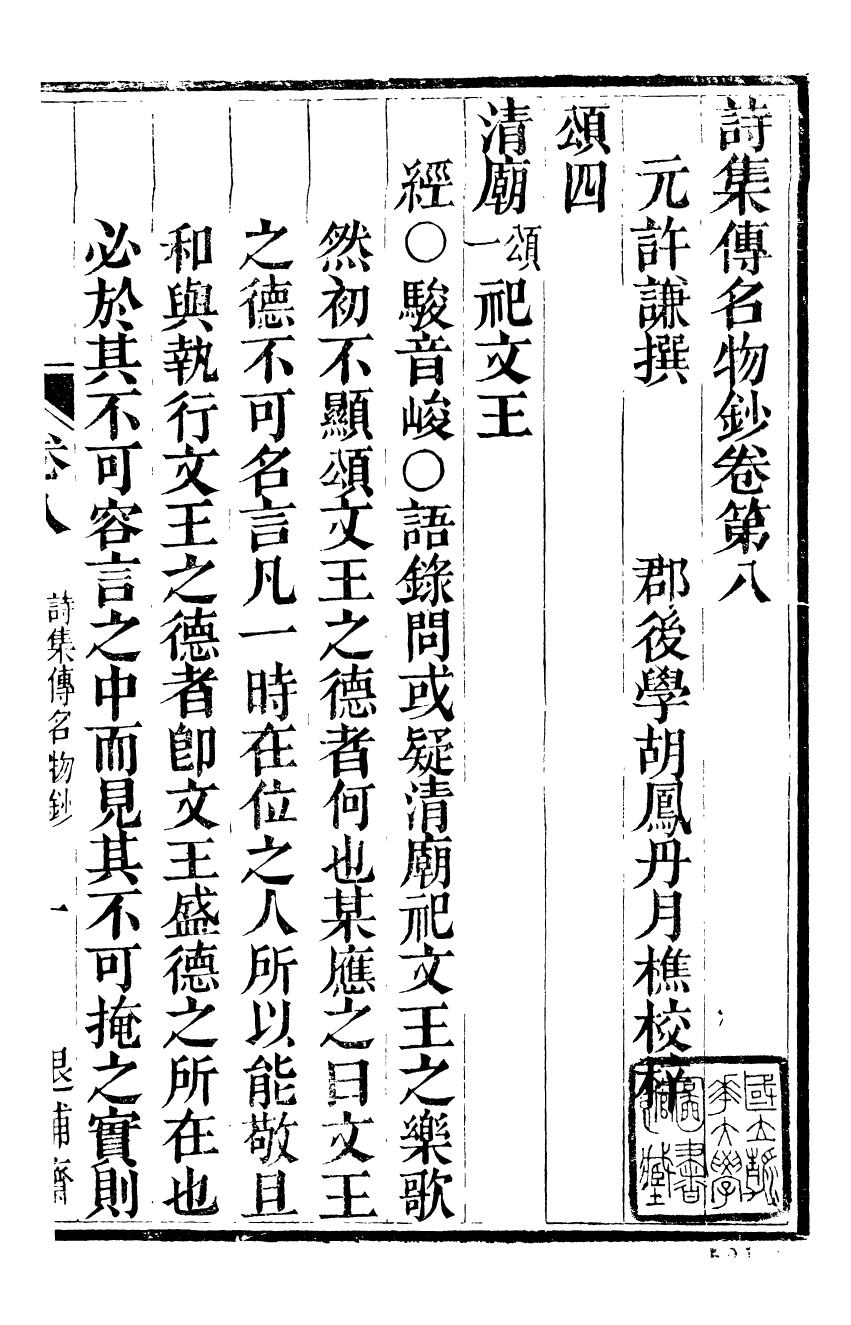 詩集傳名物鈔卷第八
元許謙撰　郡後學胡鳳丹月樵校梓
頌四
清廟頌一祀文王
經○駿音峻○語錄問或疑清廟祀文王之樂歌
然初不顯頌文王之德者何也某應之曰文王
之德不可名言凡一時在位之人所以能敬且
和與執行文王之德者卽文王盛德之所在也
必於其不可容言之中而見其不可掩之實則
卷八　詩集傳名物鈔　一　退補齋
國立清華大學圖書館藏